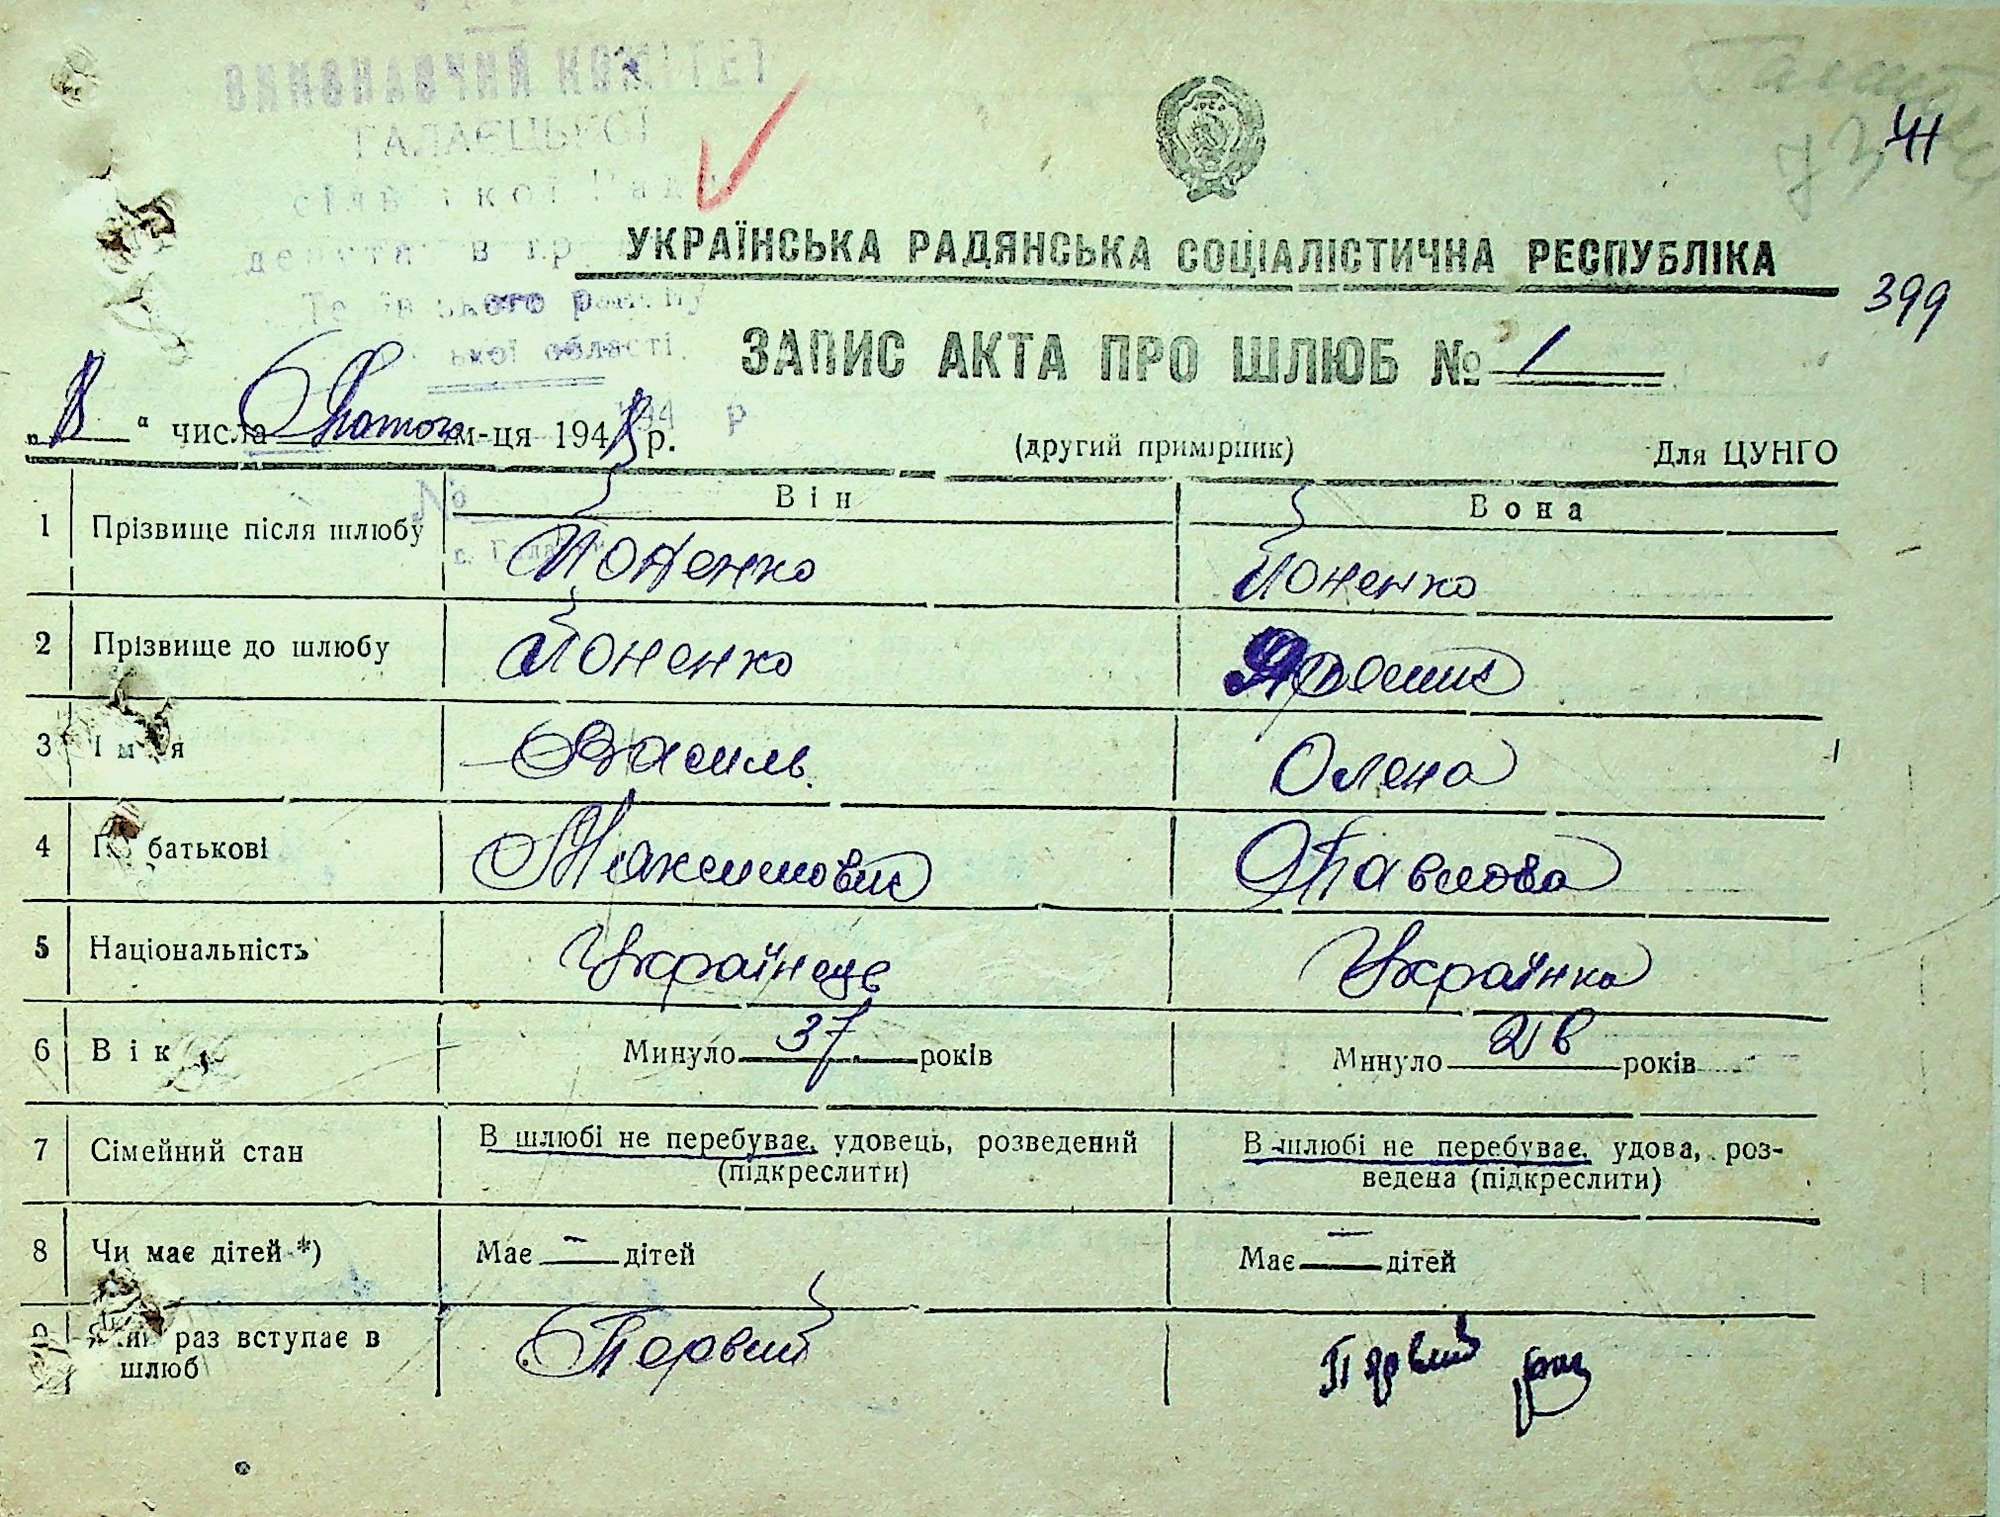 ВИКОНАВЧИЙ КОМІТЕТ
ГАЛАЄЦЬКОЇ
41
399
УКРАЇНСЬКА РАДЯНСЬКА СОЦІАЛІСТИЧНА РЕСПУБЛІКА
ЗАПИС АКТА ПРО ШЛЮБ № 1
„8“ числа Лютого м-ця 1948 р.
(другий примірник) Для ЦУНГО
Він Вона
1 Прізвище після шлюбу Йоненко Йоненко
2 Прізвище до шлюбу Йоненко
3 Василь Олена
4 батькові Максимович Павлова
5 Національність Українець Українка
6 Вік Минуло 37 років Минуло 28 років
7 Сімейний стан В шлюбі не перебуває, удовець, розведений
(підкреслити)
В шлюбі не перебуває, удова, роз-
ведена (підкреслити)
8 Чи має дітей *) Має — дітей Має — дітей
раз вступає в
шлюб
Первий
Первий раз